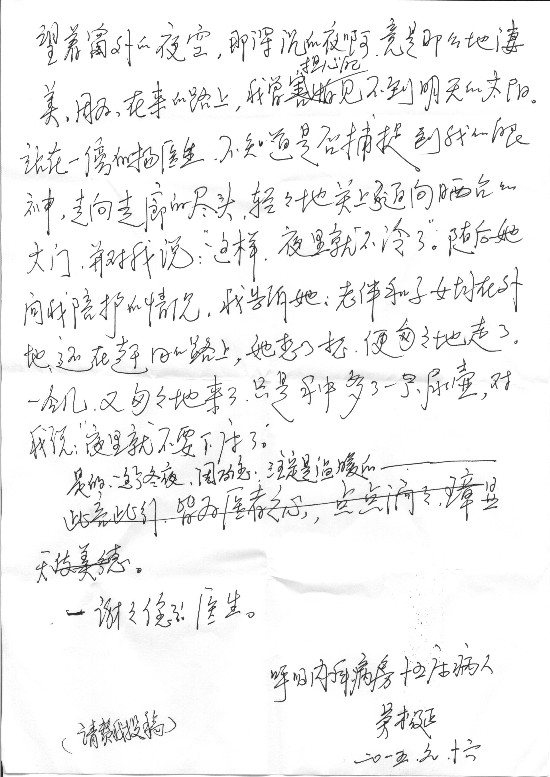 望着窗外的夜空，那深沉的夜啊，竟是那么地凄
担心自己
美，因为，在来的路上，我曾害怕见不到明天的太阳。
站在一旁的杨医生，不知道是否捕捉到我的眼
神，走向走廊的尽头，轻轻地关上了通向晒台的
大门，并对我说：“这样，夜里就不冷了。”随后她
问我陪护的情况，我告诉她：老伴和子女均在外
地，还在赶回的路上，她点了头，便匆匆地走了。
一会儿，又匆匆地来了，只是手中多了一只尿壶，对
我说：“夜里就不要下床了。”
是的，这个冬夜，因为她，注定是温暖的
此言此行，皆为医者之心，点点滴滴，璋显
天使美德。
一谢谢您了，医生。
呼吸内科病房十五床病人
二〇一五.元.十六
（请帮我投稿）